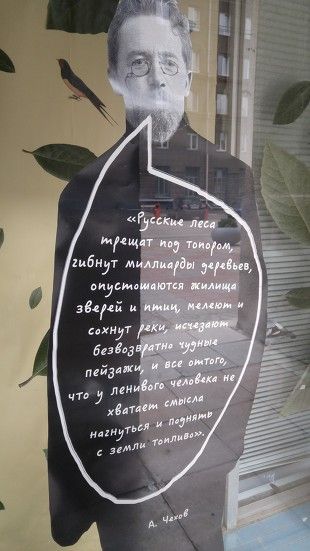 «Русские леса
трещат под топором,
гибнут миллиарды деревьев,
опустошаются жилища
зверей и птиц, мелеют и
сохнут реки, исчезают
безвозвратно чудные
пейзажи, и все оттого,
что у ленивого человека не
хватает смысла
нагнуться и поднять
с земли топливо».
А. Чехов